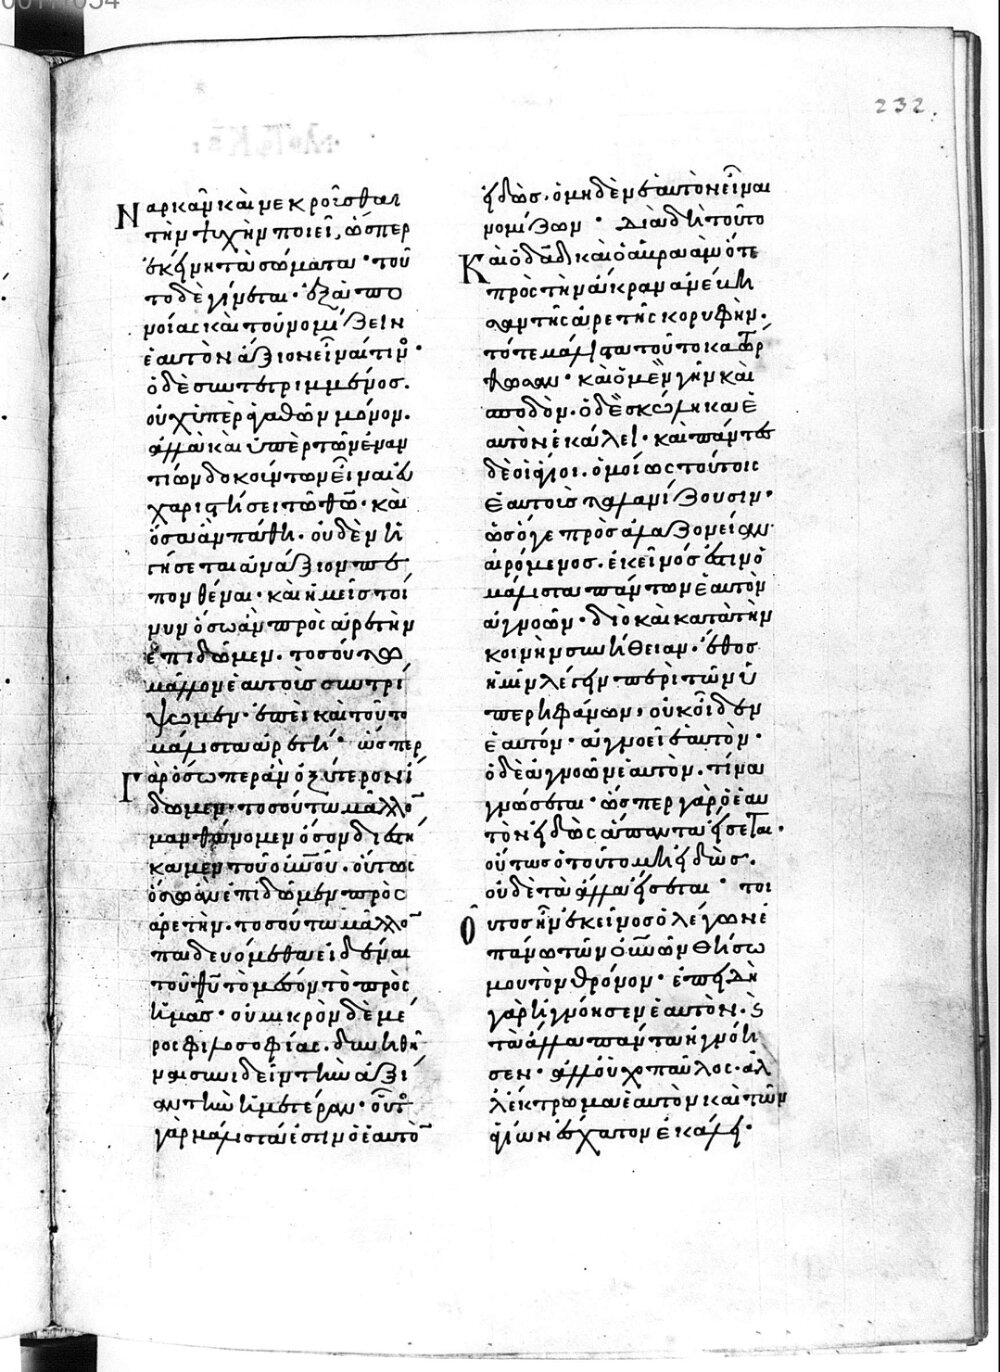 232.
Ναρκᾶν καὶ νεκροῦσθαι
τὴν ψυχὴν ποιεῖ, ὥσπερ
ἐκεῖνη τὰ σώματα· τοῦ
το δὲ γίνεται· ἐξ ἀπο
νοίας καὶ τοῦ νομίζειν
ἑαυτὸν ἄξιον εἶναί τινος·
ὁ δὲ συντετριμμένος.
οὐχ ὑπὲρ ἀγαθῶν μόνον.
ἀλλὰ καὶ ὑπὲρ τῶν ἐναν
τίων δοκούντων εἶναι εὐ
χαριστήσει τῶ θῶ· καὶ
ὅσα ἂν πάθη. οὐδὲν ἡ
γήσεται ἀνάξιον πε
πονθέναι· καὶ ἡμεῖς τοί
νυν ὅσω ἂν πρὸς ἀρετὴν
ἐπιδῶμεν. τοσούτω
μᾶλλον ἑαυτοὺς συντρί
ψωμεν· ἐπεὶ καὶ τοῦτο
μάλιστα ἀρετή· ὥσπερ
Γὰρ ὅσωπερ ἂν ὀξύτερον ἴ
δωμεν· τοσούτω μᾶλλον
μανθάνομεν ὅσον διεστή
καμεν τοῦ οὐνοῦ. οὕτως
ὅσω ἂν ἐπιδῶμεν πρὸς
ἀρετὴν. τοσούτω μᾶλλον
παιδευόμεθα εἰδέναι
τοῦ θῦ τὸ μέσον τὸ πρὸς
ἡμᾶς· οὐ μικρὸν δὲ μέ
ρος φιλοσοφίας. δυνηθῆ
ναι συνιδεῖν τὴν ἀξί
αν τὴν ἡμετέραν· οὗτος
γὰρ μάλιστά ἐστιν ὁ ἑαυτὸν
εἰδὼς. ὁ μηδὲν ἑαυτὸν εἶναι
νομίζων· Διὰ δὴ τοῦτο
Καὶ ὁ δαδ καὶ ὁ ἀβρααμ ὅτε
πρὸς τὴν ἄκραν ἀνέβη
σαν τῆς ἀρετῆς κορυφὴν.
τότε μάλιστα τοῦτο κατώρ
θωσαν· καὶ ὁ μὲν γῆν καὶ
σποδὸν. ὁ δὲ σκώληκα ἑ
αυτὸν ἐκάλει· καὶ πάντες
δὲ οἱ ἅγιοι. ὁμοίως τούτοις
ἑαυτοὺς ταλανίζουσιν·
ὡς ὅγε πρὸς ἀλαζονείαν
αἰρόμενος. ἐκεῖνός ἐστιν ὁ
μάλιστα πάντων ἑαυτὸν
ἀγνοῶν· διὸ καὶ κατὰ τὴν
κοινὴν συνήθειαν. ἔθος
ἡμῖν λέγειν περὶ τῶν ὑ
περηφάνων, οὐκ οἶδεν
ἑαυτόν· ἀγνοεῖ ἑαυτὸν·
ὁ δὲ ἀγνοῶν ἑαυτὸν. τίνα
γνώσεται· ὥσπερ γὰρ ὁ ἑαυ
τὸν εἰδὼς ἅπαντα εἴσεται·
οὕτως ὁ τοῦτο μὴ εἰδὼς.
οὐδὲ τὰ ἄλλα εἴσεται· τοι
Οῦτος ἦν ἐκεῖνος ὁ λέγων ἐ
πάνω τῶν οὐνῶν θήσω
μου τὸν θρόνον· ἐπειδὴ
γὰρ ἠγνόησεν ἑαυτὸν. καὶ
τὰ ἄλλα πάντα ἠγνόη
σεν· ἀλλ' οὐχ ὁ παῦλος· ἀλ
λ' ἔκτρωμα ἑαυτὸν καὶ τῶν
ἁγίων ἔσχατον ἐκάλει·